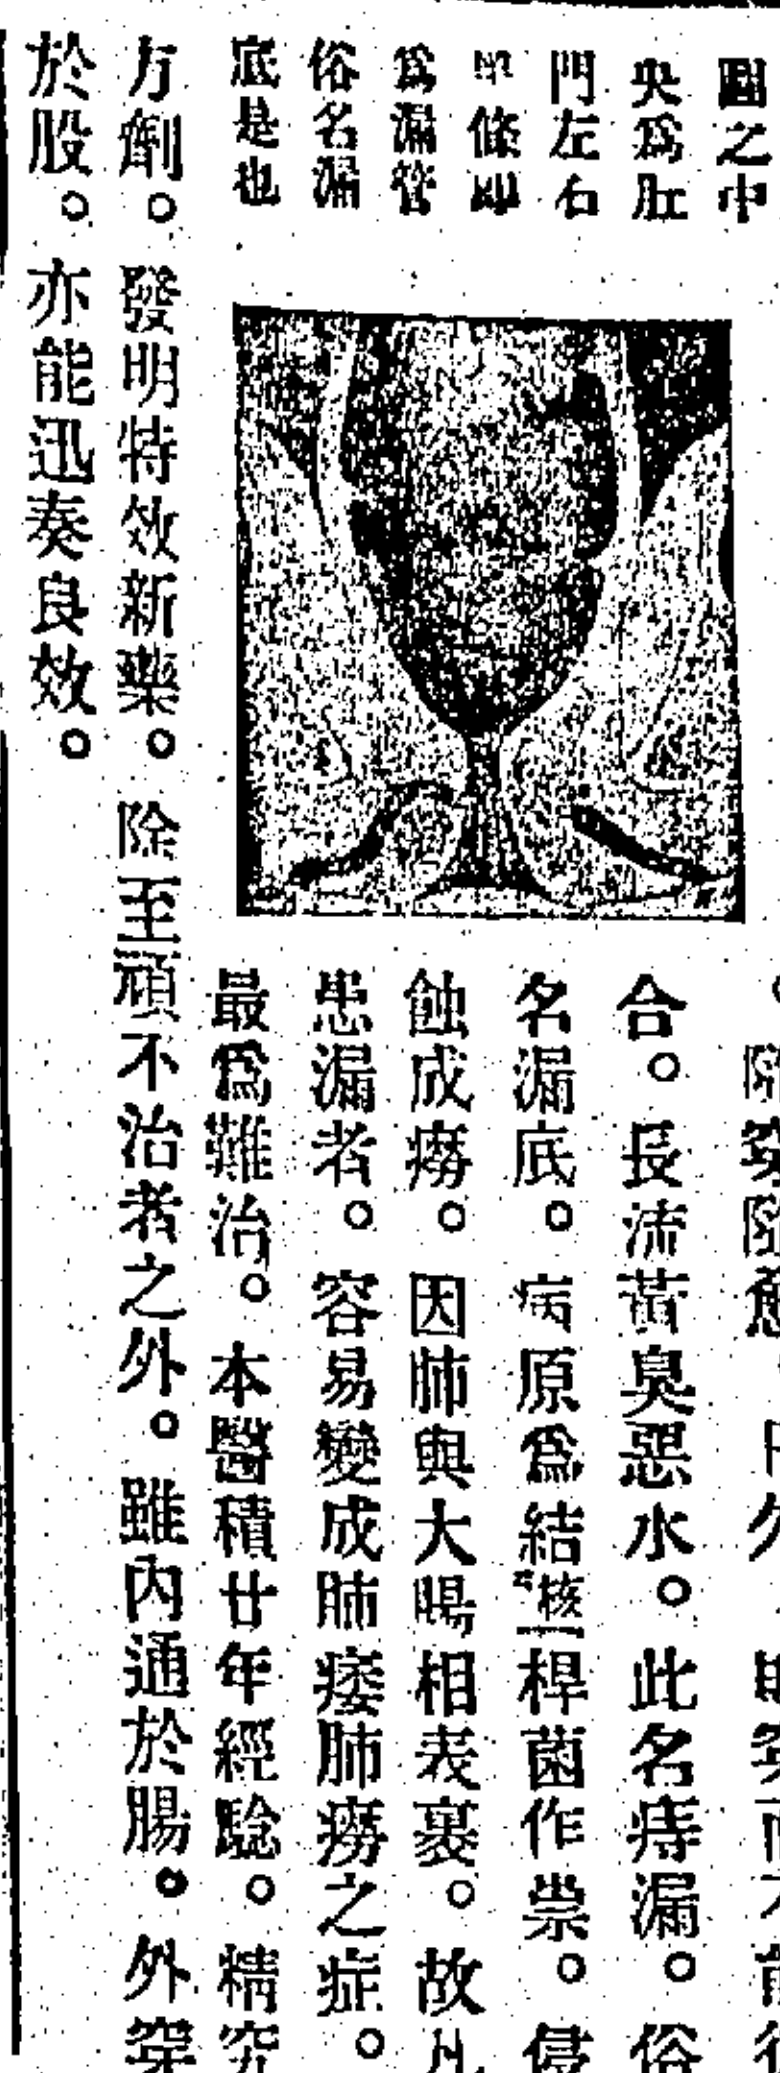 圖之中
央爲肛
門左右
條即
爲漏管
俗名漏
底是也
穿隨
久
合。長流黃臭惡水。此名痔漏。俗
名漏底。病原爲結核桿菌作祟。侵
蝕成癆。因肺與大腸相表裏。故凡
患漏者。容易變成肺痿肺癆之症。
最爲難治。本醫積廿年經驗。精究
方劑。發明特效新藥。除至頑不治者之外。雖內通於腸。外穿
於股。亦能迅奏良效。